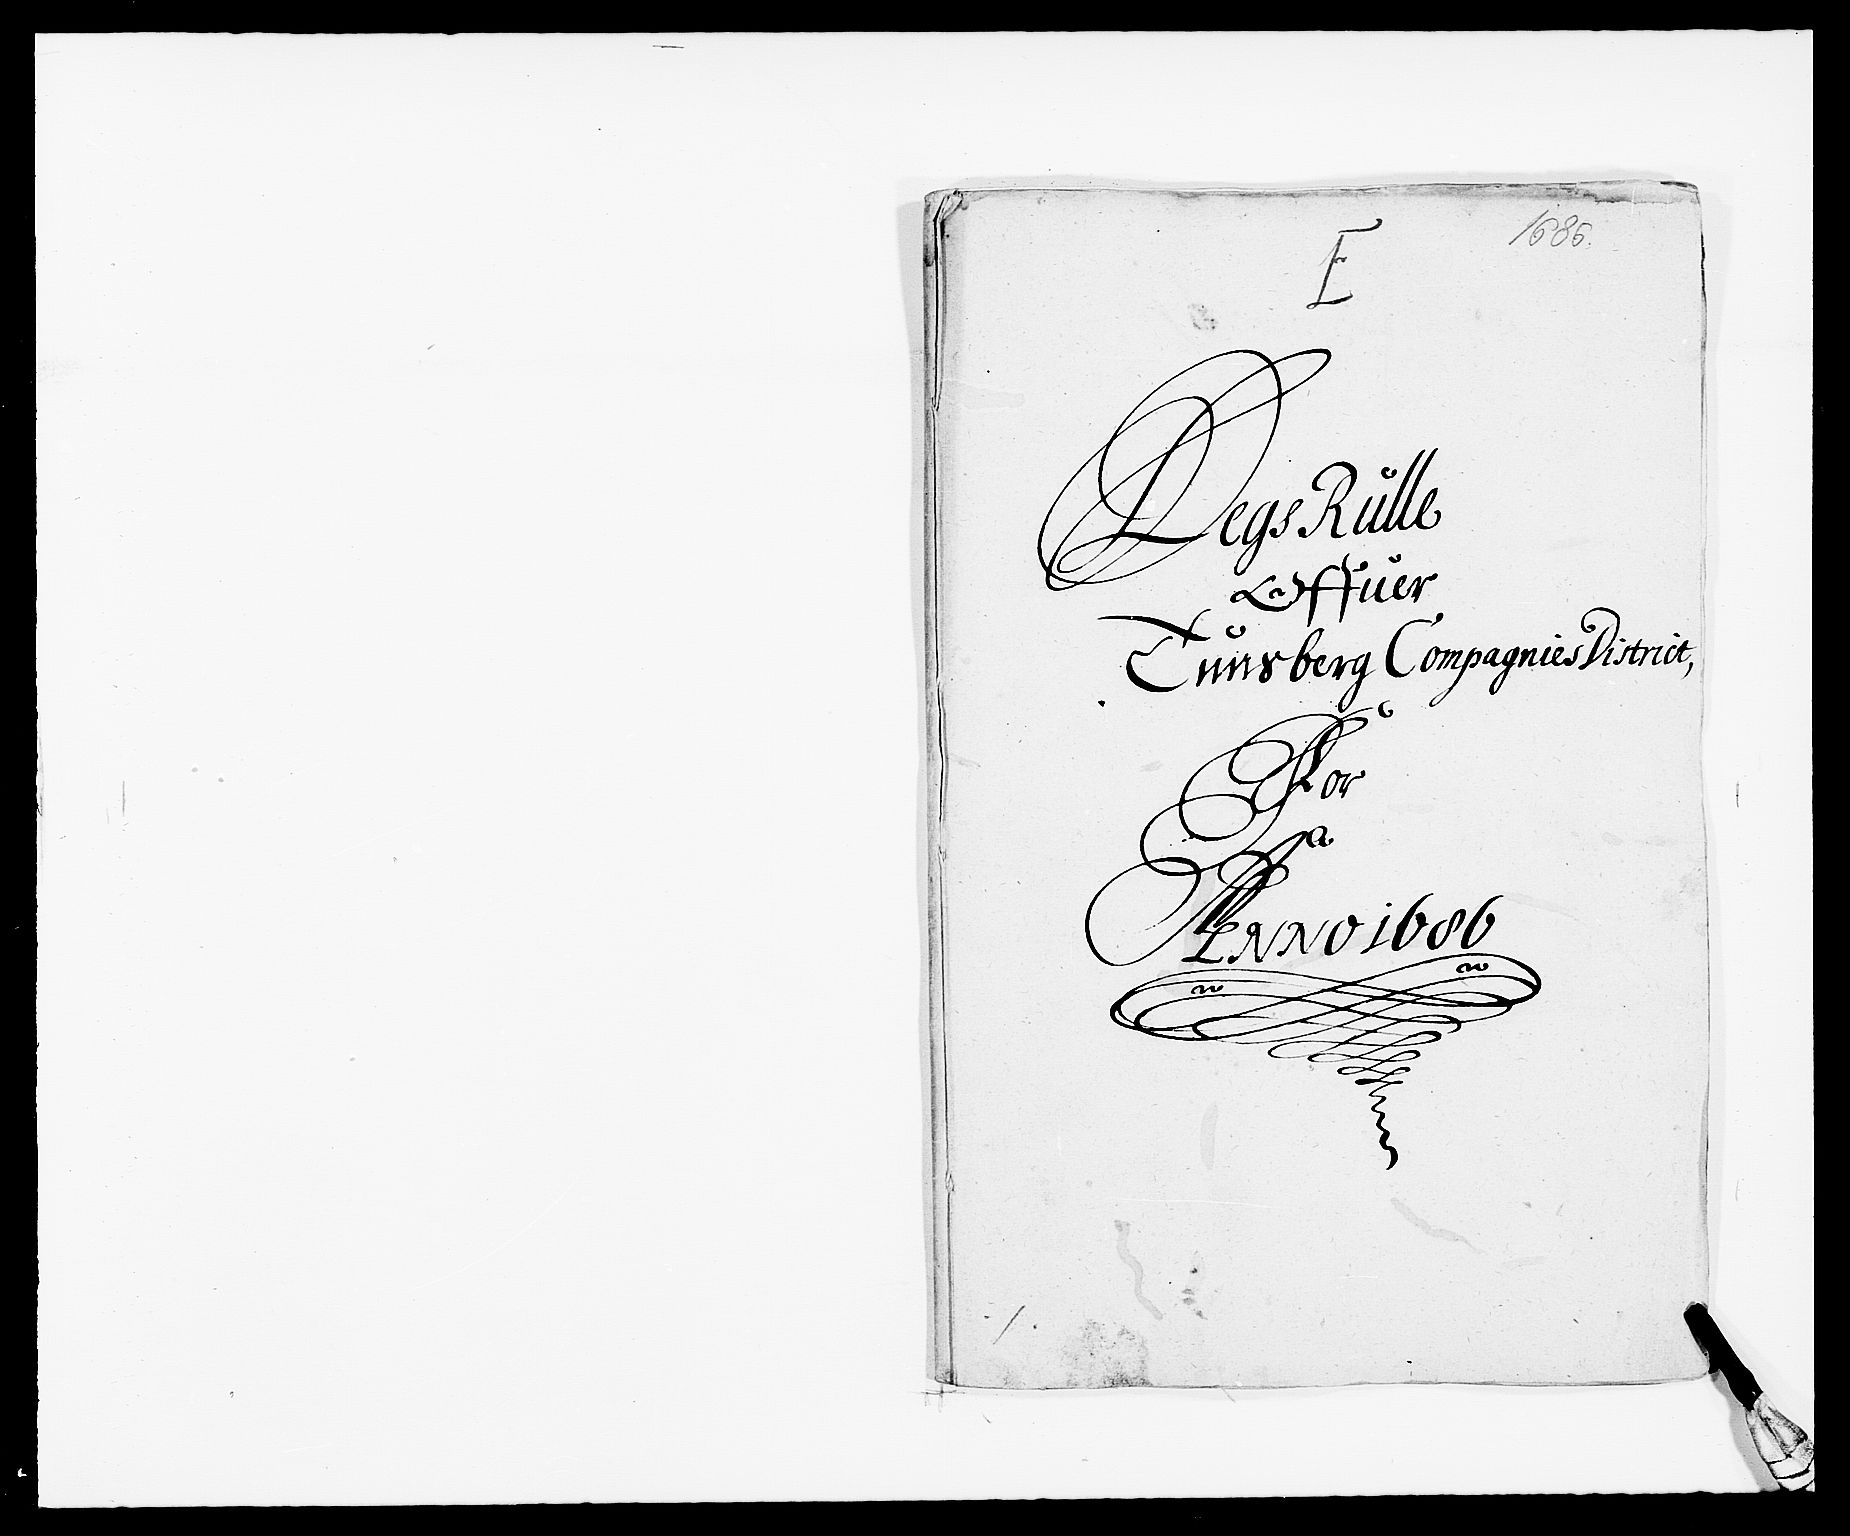 1686.
E
Legs Rulle
Offuer
Tunsberg Compagnies District,
For
Anno 1686
1.